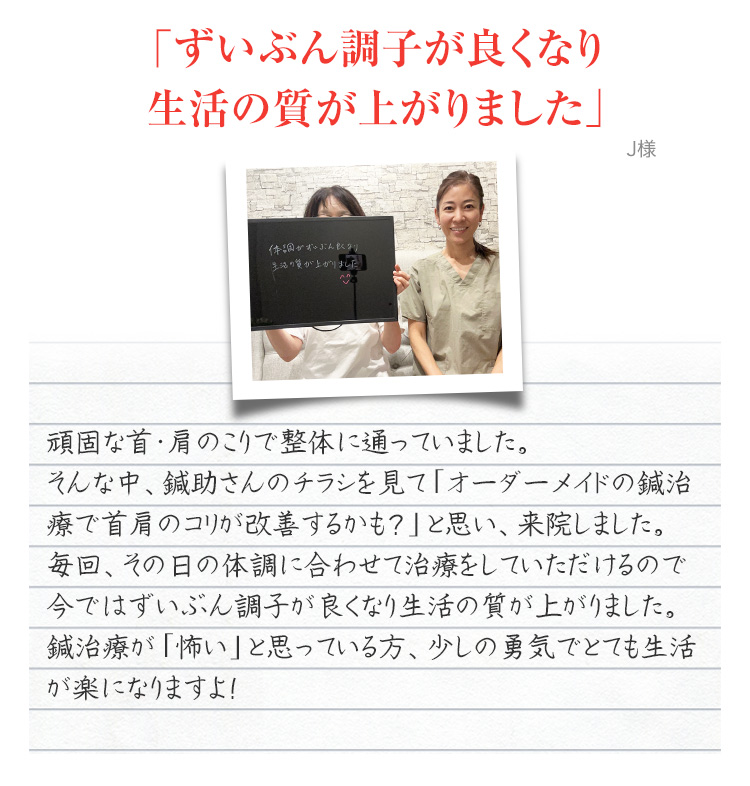 「ずいぶん調子が良くなり
生活の質が上がりました」
J様
体調がずいぶん良くなり
生活の質が上がりました
頑固な首・肩のこりで整体に通っていました。
そんな中、鍼助さんのチラシを見て「オーダーメイドの鍼治
療で首肩のコリが改善するかも?」と思い、来院しました。
毎回、その日の体調に合わせて治療をしていただけるので
今ではずいぶん調子が良くなり生活の質が上がりました。
鍼治療が「怖い」と思っている方、少しの勇気でとても生活
が楽になりますよ!